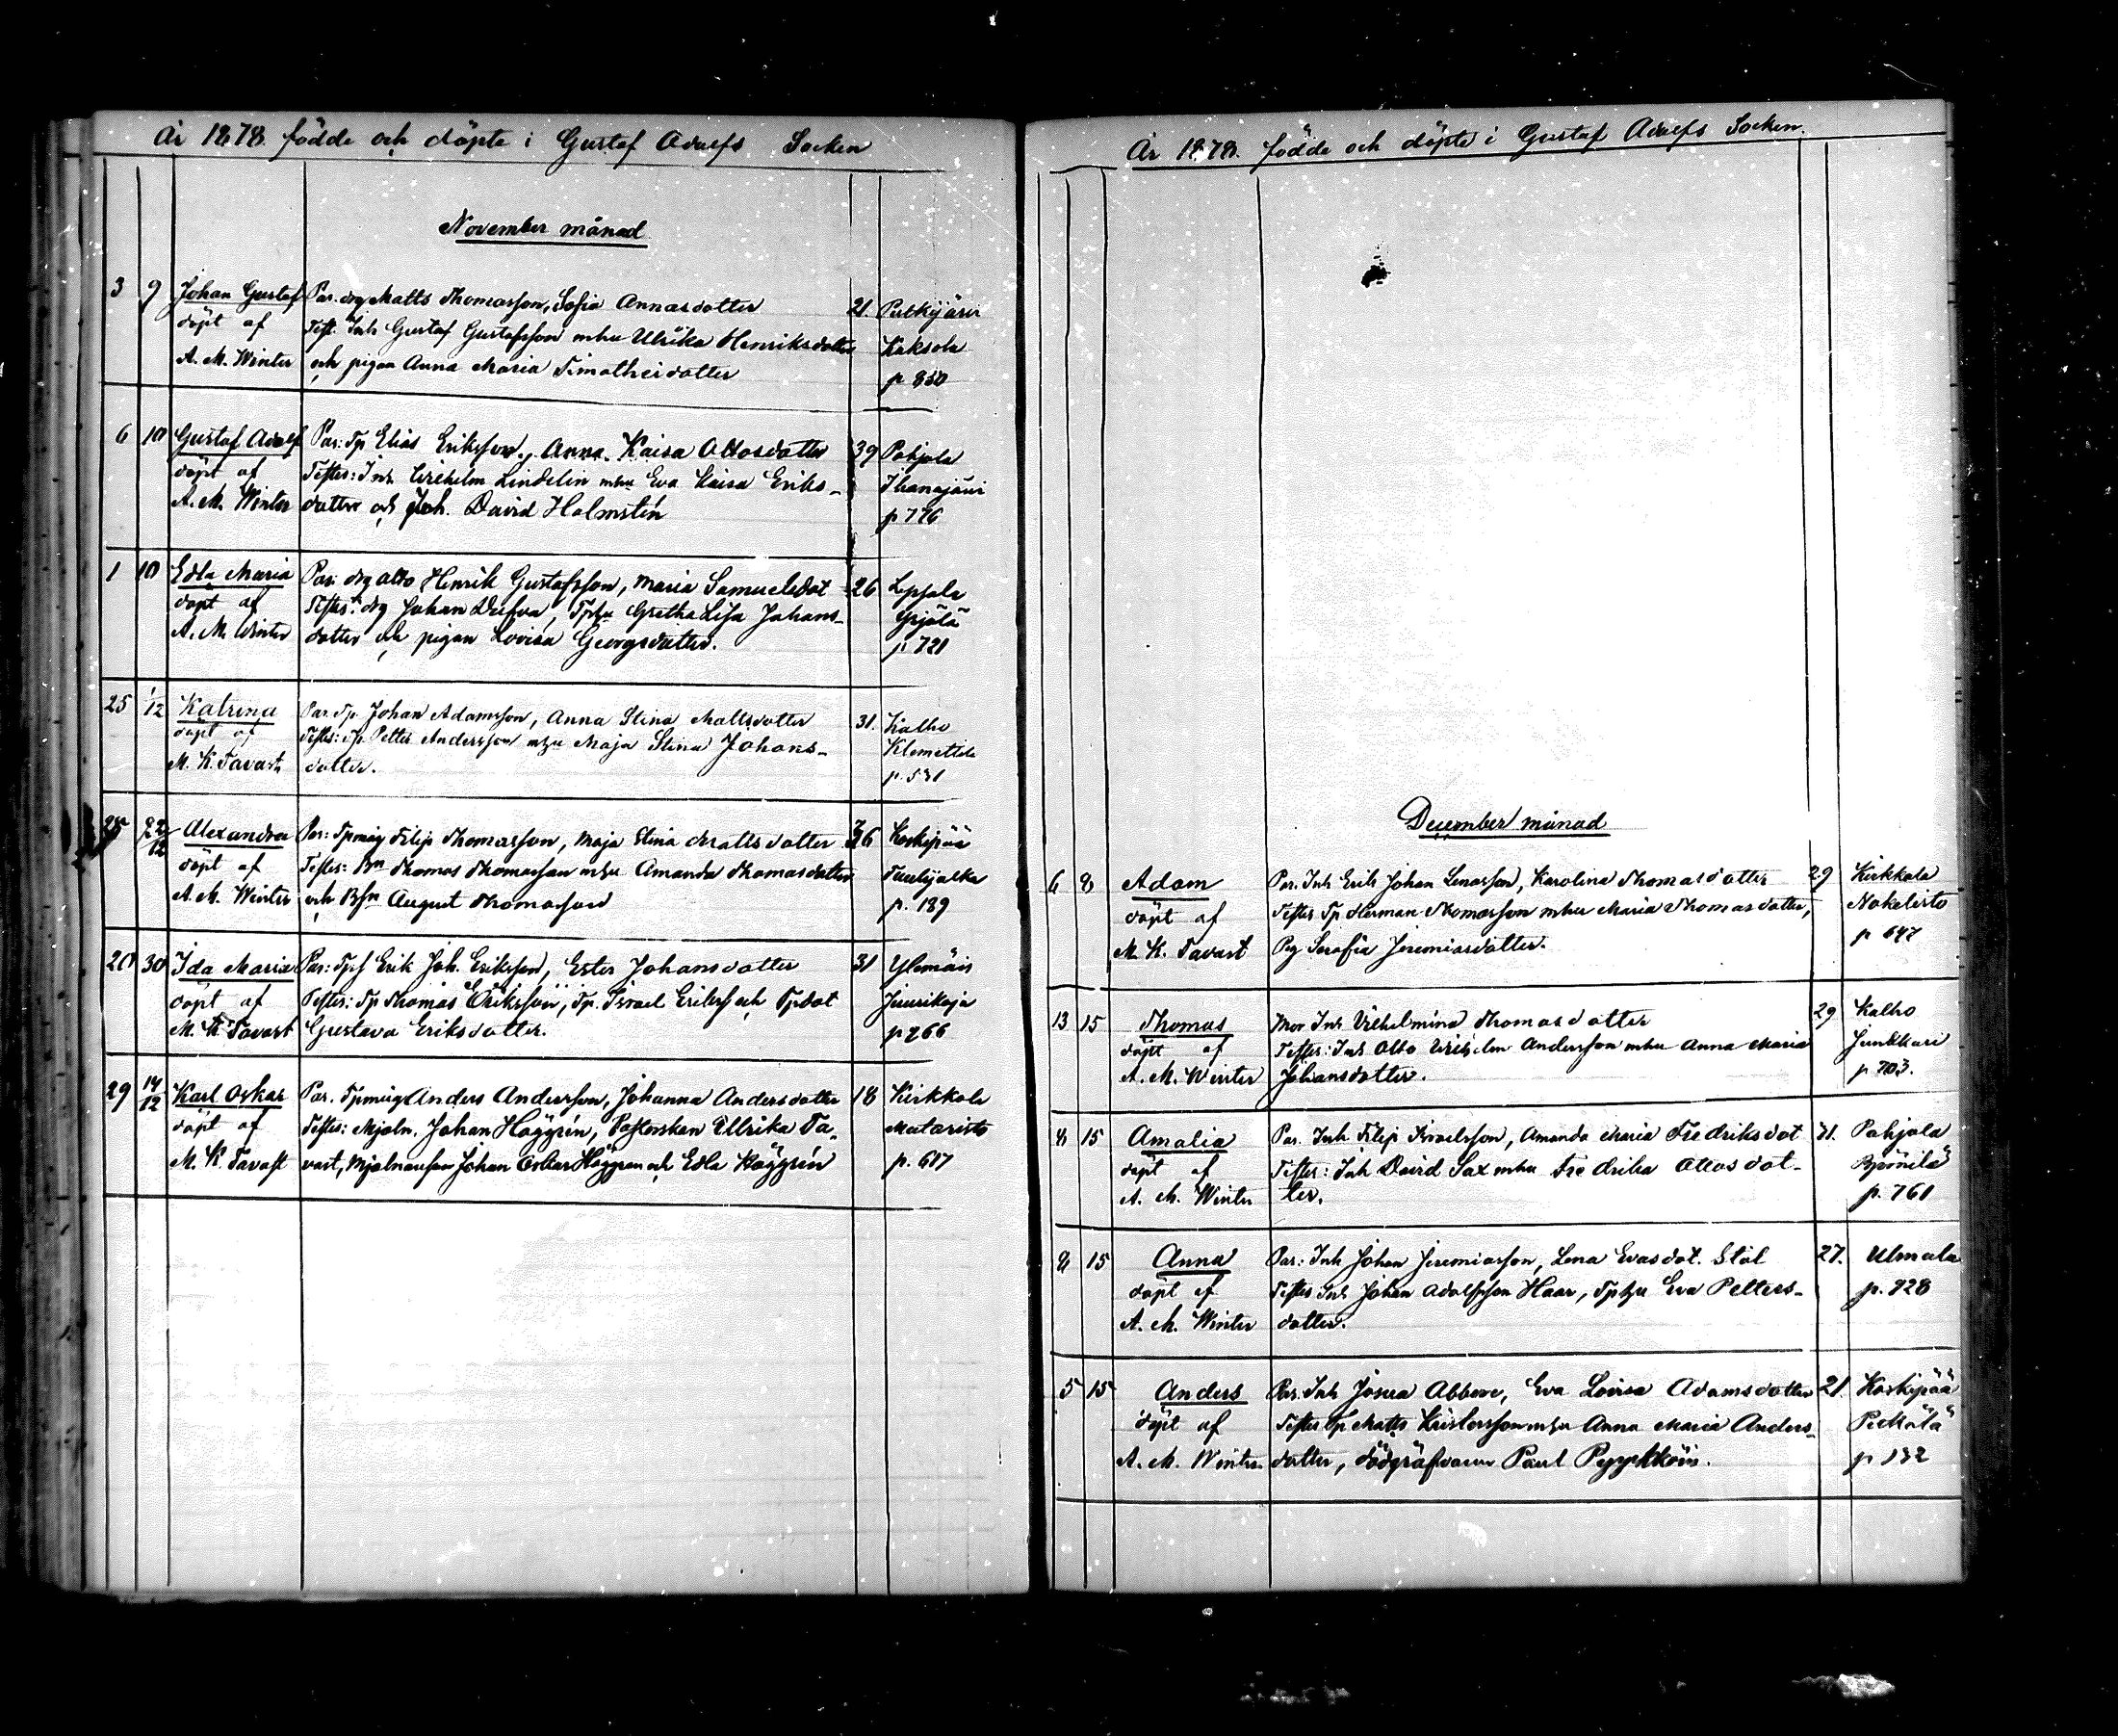 År 1878. födde och döpte i Gustaf Adolfs Socken
November månad
3 9 Johan Gustaf Par. drg Matts Thomasson, Sofia Annasdotter 21. Putkijärvi
döpt af Test. Inh Gustaf Gustafsson mhu Ulrika Henriksdotter Kaksola
A. M. Winter och pigan Anna Maria Timotheidotter p 850
6 10 Gustaf Adolf Par: Tp Elias Eriksson, Anna Kaisa Ottosdotter 39 Pohjola
döpt af Testes: Inh Wilhelm Lindelin mhu Eva Kaisa Eriks-
A. M. Winter dotter och Joh. David Holmstén p 776
1 10 Edla Maria Par: drg Otto Henrik Gustafsson, Maria Samuelsdot 26 Lepsala
döpt af Testes: drg Johan Dufva, Tphu Gretha Lisa Johans- Yrjölä
A. M. Winter dotter och pigan Lovisa Georgsdotter. p. 721
25 1/12 Katrina Par. Tp. Johan Adamsson, Anna Stina Mattsdotter 31. Kalho
döpt af Testes: Tp. Petter Andersson mhu Maja Stina Johans- Klemettilä
M. K. Tavast dotter. p. 531
22/12 Alexandra Par: Tpmåg Filip Thomasson, Maja Stina Mattsdotter 36 Koskipää
döpt af Testes: Bn Thomas Thomasson mhu Amanda Thomasdotter
A. M. Winter och Bsn August Thomasson p. 189
20 30 Ida Maria Par: Tps Erik Joh. Eriksson, Ester Johansdotter 31 Ylemäis
döpt af Testes: Tp Thomas Eriksson, Tp. Israel Erikss och Tpdot Juurikoja
M. K Tavast Gustava Eriksdotter. p 266
29 14/12 Karl Oskar Par. Tpmåg Anders Andersson, Johanna Andersdotter 18 Kirkkola
döpt af Testes: Mjöln. Johan Häggrén, Pastorskan Ullrika Ta- Mataristo
M. K. Tavast vast, Mjölnareson Johan Oskar Häggren och Edla Häggrén p. 617
År 1878. födde och döpte i Gustaf Adolfs Socken.
December månad
6 8 Adam Par. Inh Erik Johan Lenasson, Karolina Thomasdotter 29 Kirkkola
döpt af Testes Tp Herman Thomasson mhu Maria Thomasdotter, Nokelisto
M. K. Tavast Pig Serafia Jeremiasdotter. p 647
13 15 Thomas Mor Inh Vilhelmina Thomasdotter 29 Kalho
döpt af Testes: Inh Otto Wilhelm Andersson mhu Anna Maria Junkkari
A. M. Winter Johansdotter. p 703.
8 15 Amalia Par. Inh Filip Israelsson, Amanda Maria Fredriksdot 31. Pohjola
döpt af Testes: Inh David Sax mhu Fredrika Ottosdot-
A. M. Winter ter. p. 761
8 15 Anna Par: Inh Johan Jeremiasson, Lena Evasdot. Stål 27. Ulmala
döpt af Testes Inh Johan Adolfsson Haar, Tphu Eva Petters- p. 928
A. M. Winter dotter.
5 15 Anders Par. Inh Josua Abborre, Eva Lovisa Adamsdotter 21 Koskipää
döpt af Testes Tp Matts Kristersson mhu Anna Maria Anders- Pekkälä
A. M. Winter dotter, dödgräfvaren Paul Pyyhkköin. p 132